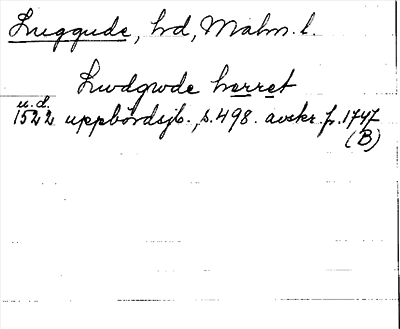 Luggude, hd, Malm. l.
Lwdgwde herret
u.d.
1522 uppbördsjb., s. 498. avskr. fr. 1747
(B)